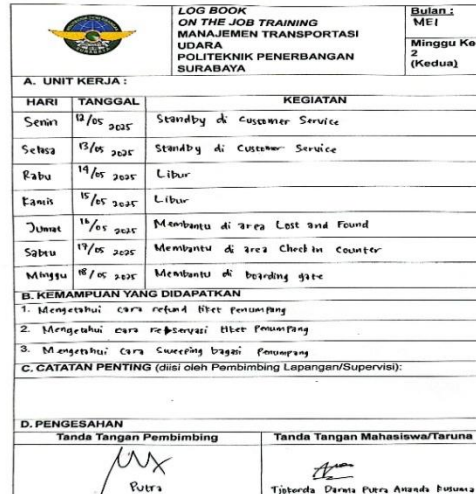 LOG BOOK
ON THE JOB TRAINING
MANAJEMEN TRANSPORTASI
UDARA
POLITEKNIK PENERBANGAN
SURABAYA
Bulan :
MEI
Minggu Ke
2
(Kedua)
A. UNIT KERJA :
HARI TANGGAL KEGIATAN
Senin 12/05 2025 Standby di Customer Service
Selasa 13/05 2025 Standby di Customer Service
Rabu 14/05 2025 Libur
Kamis 15/05 2025 Libur
Jumat 16/05 2025 Membantu di area Lost and Found
Sabtu 17/05 2025 Membantu di area Check in Counter
Minggu 18/05 2025 Membantu di boarding gate
B. KEMAMPUAN YANG DIDAPATKAN
1. Mengetahui cara refund tiket penumpang
2. Mengetahui cara reservasi tiket penumpang
3. Mengetahui cara Sweeping bagasi penumpang
C. CATATAN PENTING (diisi oleh Pembimbing Lapangan/Supervisi):
D. PENGESAHAN
Tanda Tangan Pembimbing Tanda Tangan Mahasiswa/Taruna
Putra
Tjokorda Darma Putra Ananda Kusuma